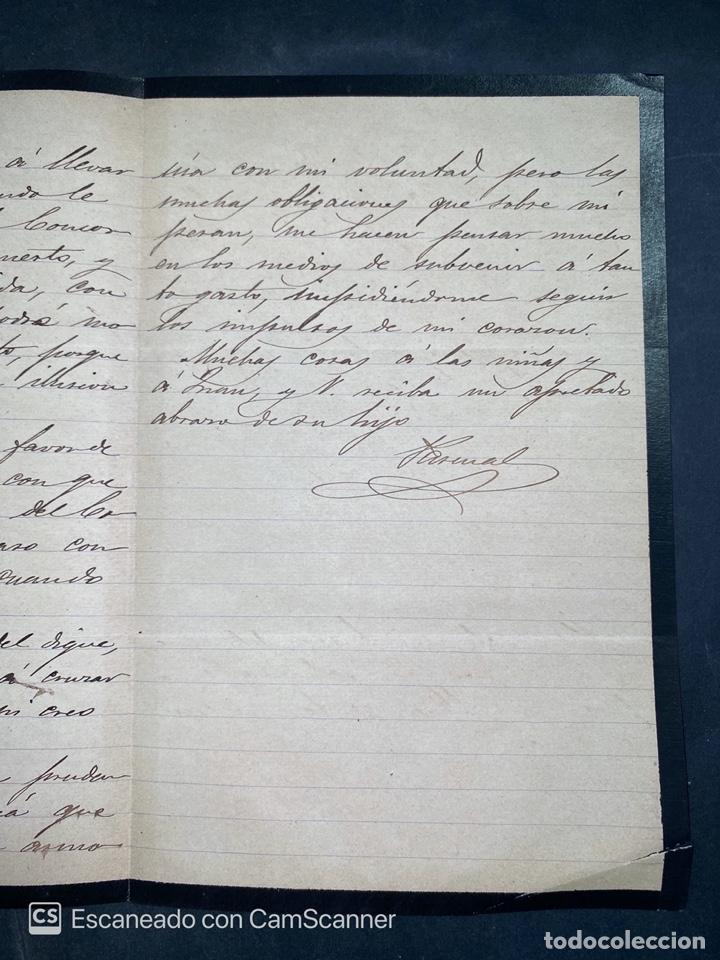 á llevar
ndo le
Concor
nerto, y
da, con
odrá mo
to, porque
illision
favor de
con que
del Co
aso con
cuando
del dique,
á cruzar
ni creo
pruden
á que
asmo
ría con mi voluntad, pero las
muchas obligaciones que sobre mi
pesan, me hacen pensar mucho
en los medios de subvenir á tan
to gasto, impidiéndome seguir
los impulsos de mi corazon.
Muchas cosas á las niñas y
á Juan, y V. reciba un apretado
abrazo de su hijo
Pascual
CS Escaneado con CamScanner
todocoleccion